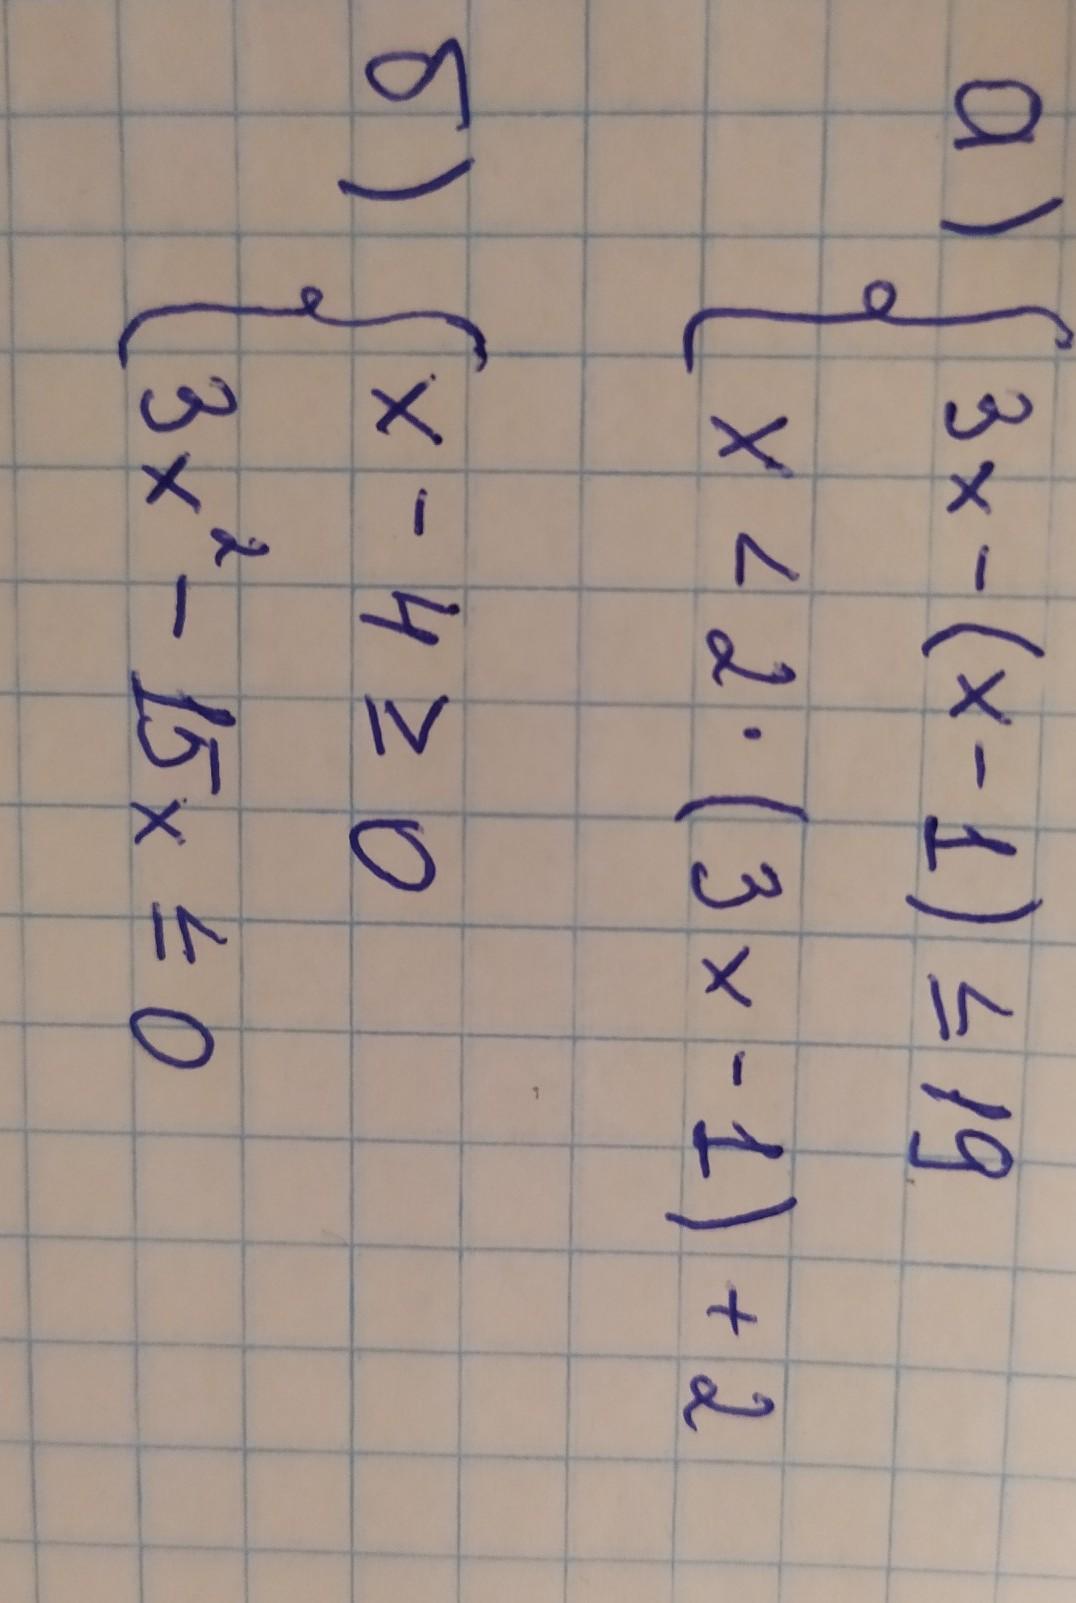 а) { 3x - (x - 1) ≤ 19
x < 2 · (3x - 1) + 2
б) { x - 4 ≥ 0
3x² - 15x ≤ 0